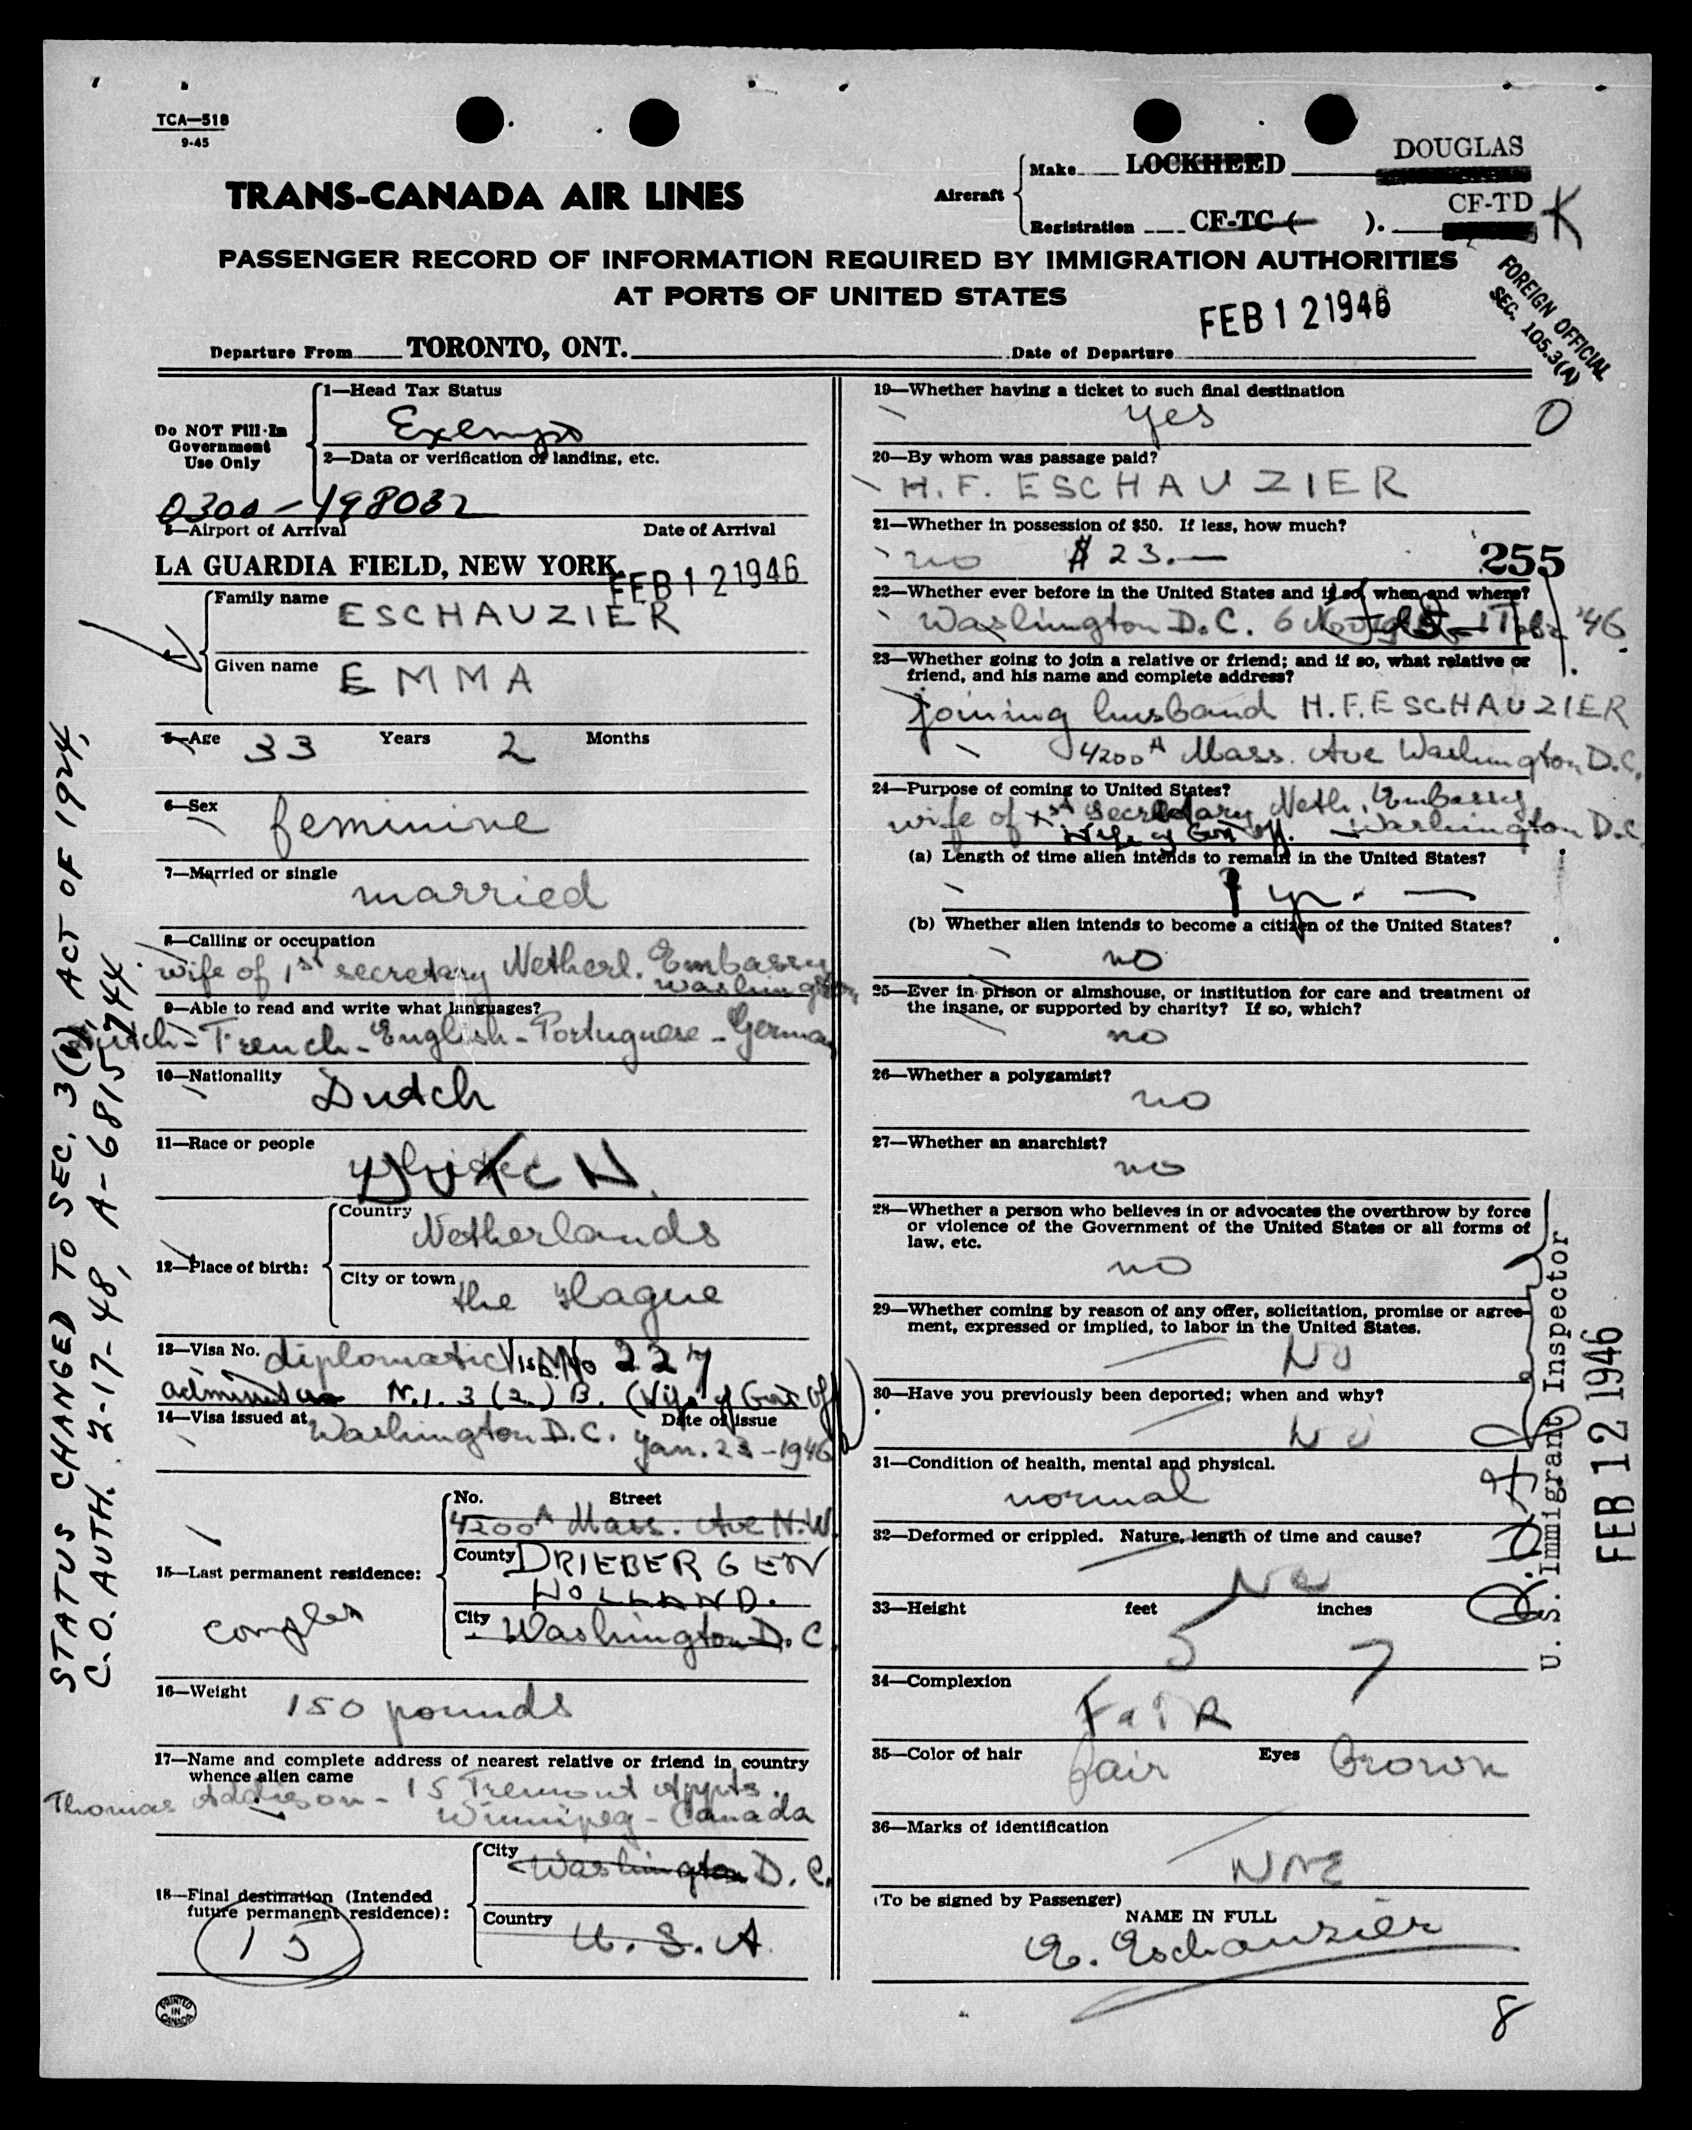 TCA—518
9-45
TRANS-CANADA AIR LINES
Aircraft
Make LOCKHEED DOUGLAS
Registration CF-TC ( ). CF-TD K
PASSENGER RECORD OF INFORMATION REQUIRED BY IMMIGRATION AUTHORITIES
AT PORTS OF UNITED STATES
FEB 12 1946
FOREIGN OFFICIAL
SEC. 105.3(A)
Departure From TORONTO, ONT. Date of Departure
Do NOT Fill-In
Government
Use Only
1—Head Tax Status
Exempt
2—Data or verification of landing, etc.
0300-198032
3—Airport of Arrival Date of Arrival
LA GUARDIA FIELD, NEW YORK FEB 12 1946
Family name ESCHAUZIER
Given name EMMA
5—Age 33 Years 2 Months
6—Sex
feminine
7—Married or single
married
8—Calling or occupation
wife of 1st secretary Netherl. Embassy
Washington
9—Able to read and write what languages?
Dutch - French - English - Portuguese - German
10—Nationality
Dutch
11—Race or people
DUTCH
12—Place of birth:
Country
Netherlands
City or town
the Hague
13—Visa No. diplomatic Visa No 227
admitted as N.I. 3 (2) B. (Wife of Gov Off)
14—Visa issued at Date of issue
Washington D.C. Jan. 23 - 1946
15—Last permanent residence:
No. Street
4200A Mass. Ave N.W.
County DRIEBERGEN
HOLLAND.
City Washington D.C.
16—Weight
150 pounds
17—Name and complete address of nearest relative or friend in country
whence alien came
Thomas Addison - 15 Tremont Appts.
Winnipeg - Canada
18—Final destination (Intended
future permanent residence):
15
City
Washington D.C.
Country
U.S.A.
PRINTED
IN
CANADA
STATUS CHANGED TO SEC. 3(1), ACT OF 1924,
C.O. AUTH. 2-17-48, A-6815744
19—Whether having a ticket to such final destination
yes
O
20—By whom was passage paid?
H.F. ESCHAUZIER
21—Whether in possession of $50. If less, how much?
no $ 23.—
255
22—Whether ever before in the United States and if so, when and where?
Washington D.C. 6 Nov '46
23—Whether going to join a relative or friend; and if so, what relative or
friend, and his name and complete address?
joining husband H.F. ESCHAUZIER
4200A Mass. Ave Washington D.C.
24—Purpose of coming to United States?
wife of 1st secretary Neth. Embassy
Wife of Gov Off. Washington D.C.
(a) Length of time alien intends to remain in the United States?
1 yr. —
(b) Whether alien intends to become a citizen of the United States?
no
25—Ever in prison or almshouse, or institution for care and treatment of
the insane, or supported by charity? If so, which?
no
26—Whether a polygamist?
no
27—Whether an anarchist?
no
28—Whether a person who believes in or advocates the overthrow by force
or violence of the Government of the United States or all forms of
law, etc.
no
29—Whether coming by reason of any offer, solicitation, promise or agree-
ment, expressed or implied, to labor in the United States.
No
30—Have you previously been deported; when and why?
No
31—Condition of health, mental and physical.
normal
32—Deformed or crippled. Nature, length of time and cause?
No
33—Height feet inches
5 7
34—Complexion
FAIR
35—Color of hair Eyes
fair brown
36—Marks of identification
(To be signed by Passenger)
NAME IN FULL
E. Eschauzier
8
U. S. Immigrant Inspector
FEB 12 1946